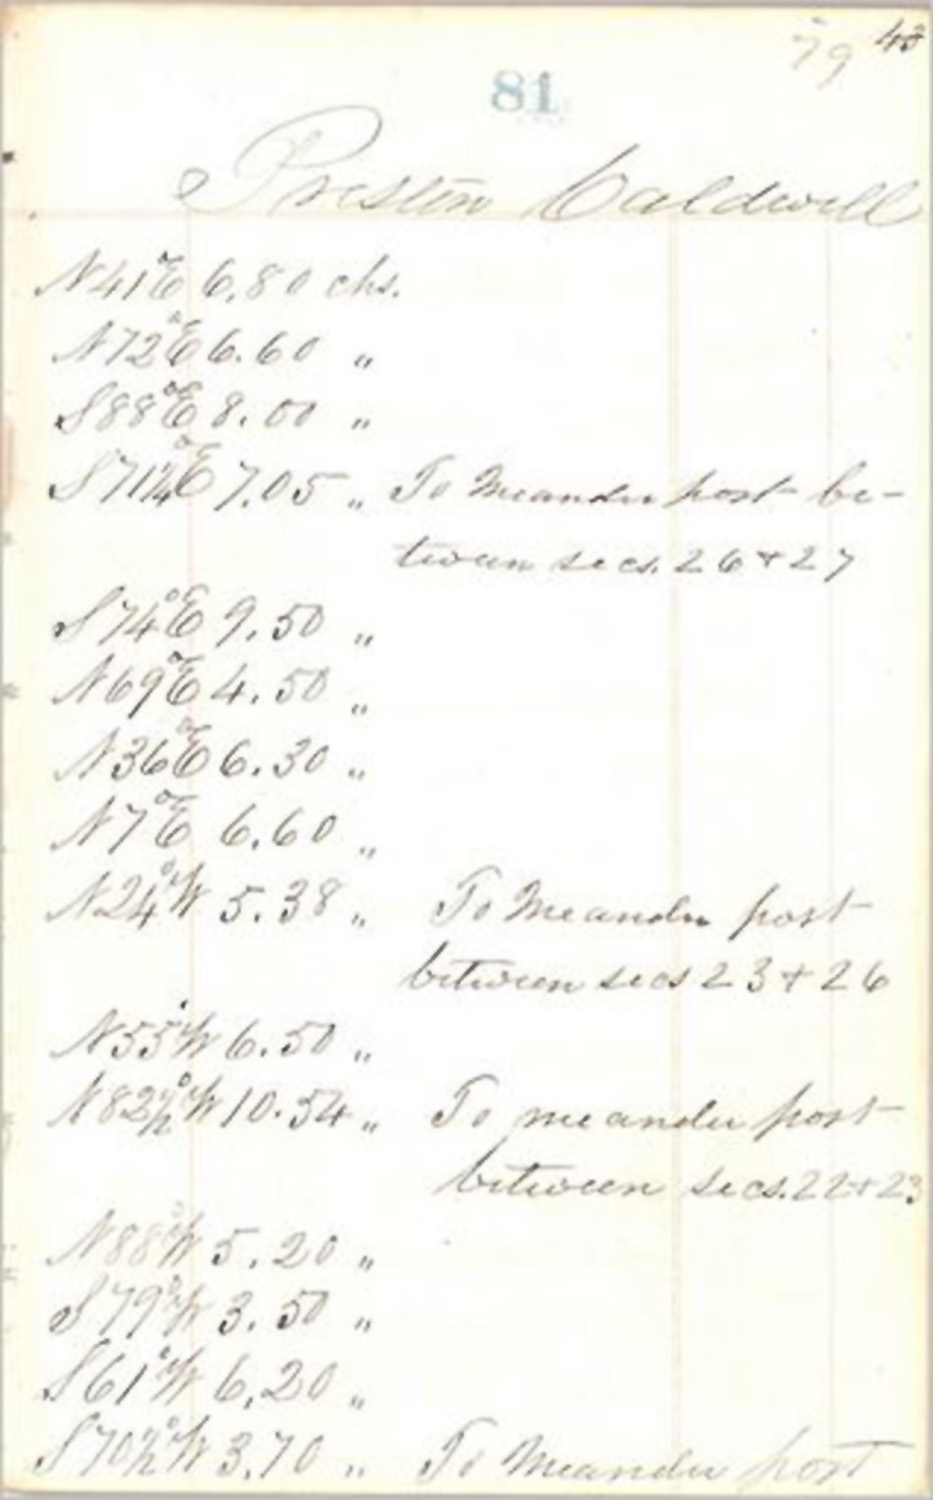 79 48
81
Preston Caldwell
N41°E 6.80 chs.
N72°E 6.60 "
S88°E 8.00 "
S71¼°E 7.05 " To Meander post be-
tween secs. 26 + 27
S74°E 9.50 "
N69°E 4.50 "
N36°E 6.30 "
N7°E 6.60 "
N24°W 5.38 " To Meander post
between secs 23 + 26
N55°W 6.50 "
N82½°W 10.54 " To meander post
between secs. 22 + 23
N88°W 5.20 "
S79°W 3.50 "
S61°W 6.20 "
S70½°W 3.70 " To Meander post